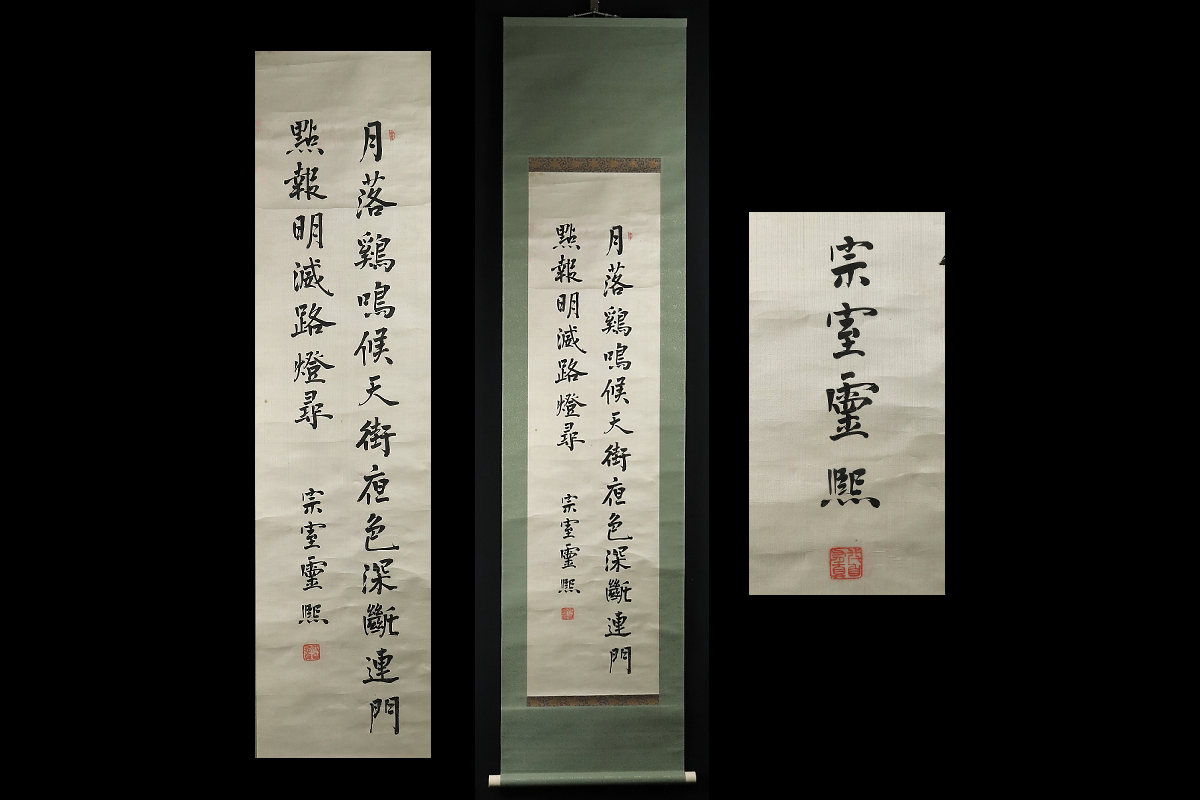 月落鷄鳴候天街夜色深斷連門
點報明滅路燈尋
宗室靈熙
月落鷄鳴候天街夜色深斷連門
點報明滅路燈尋
宗室靈熙
宗室靈熙